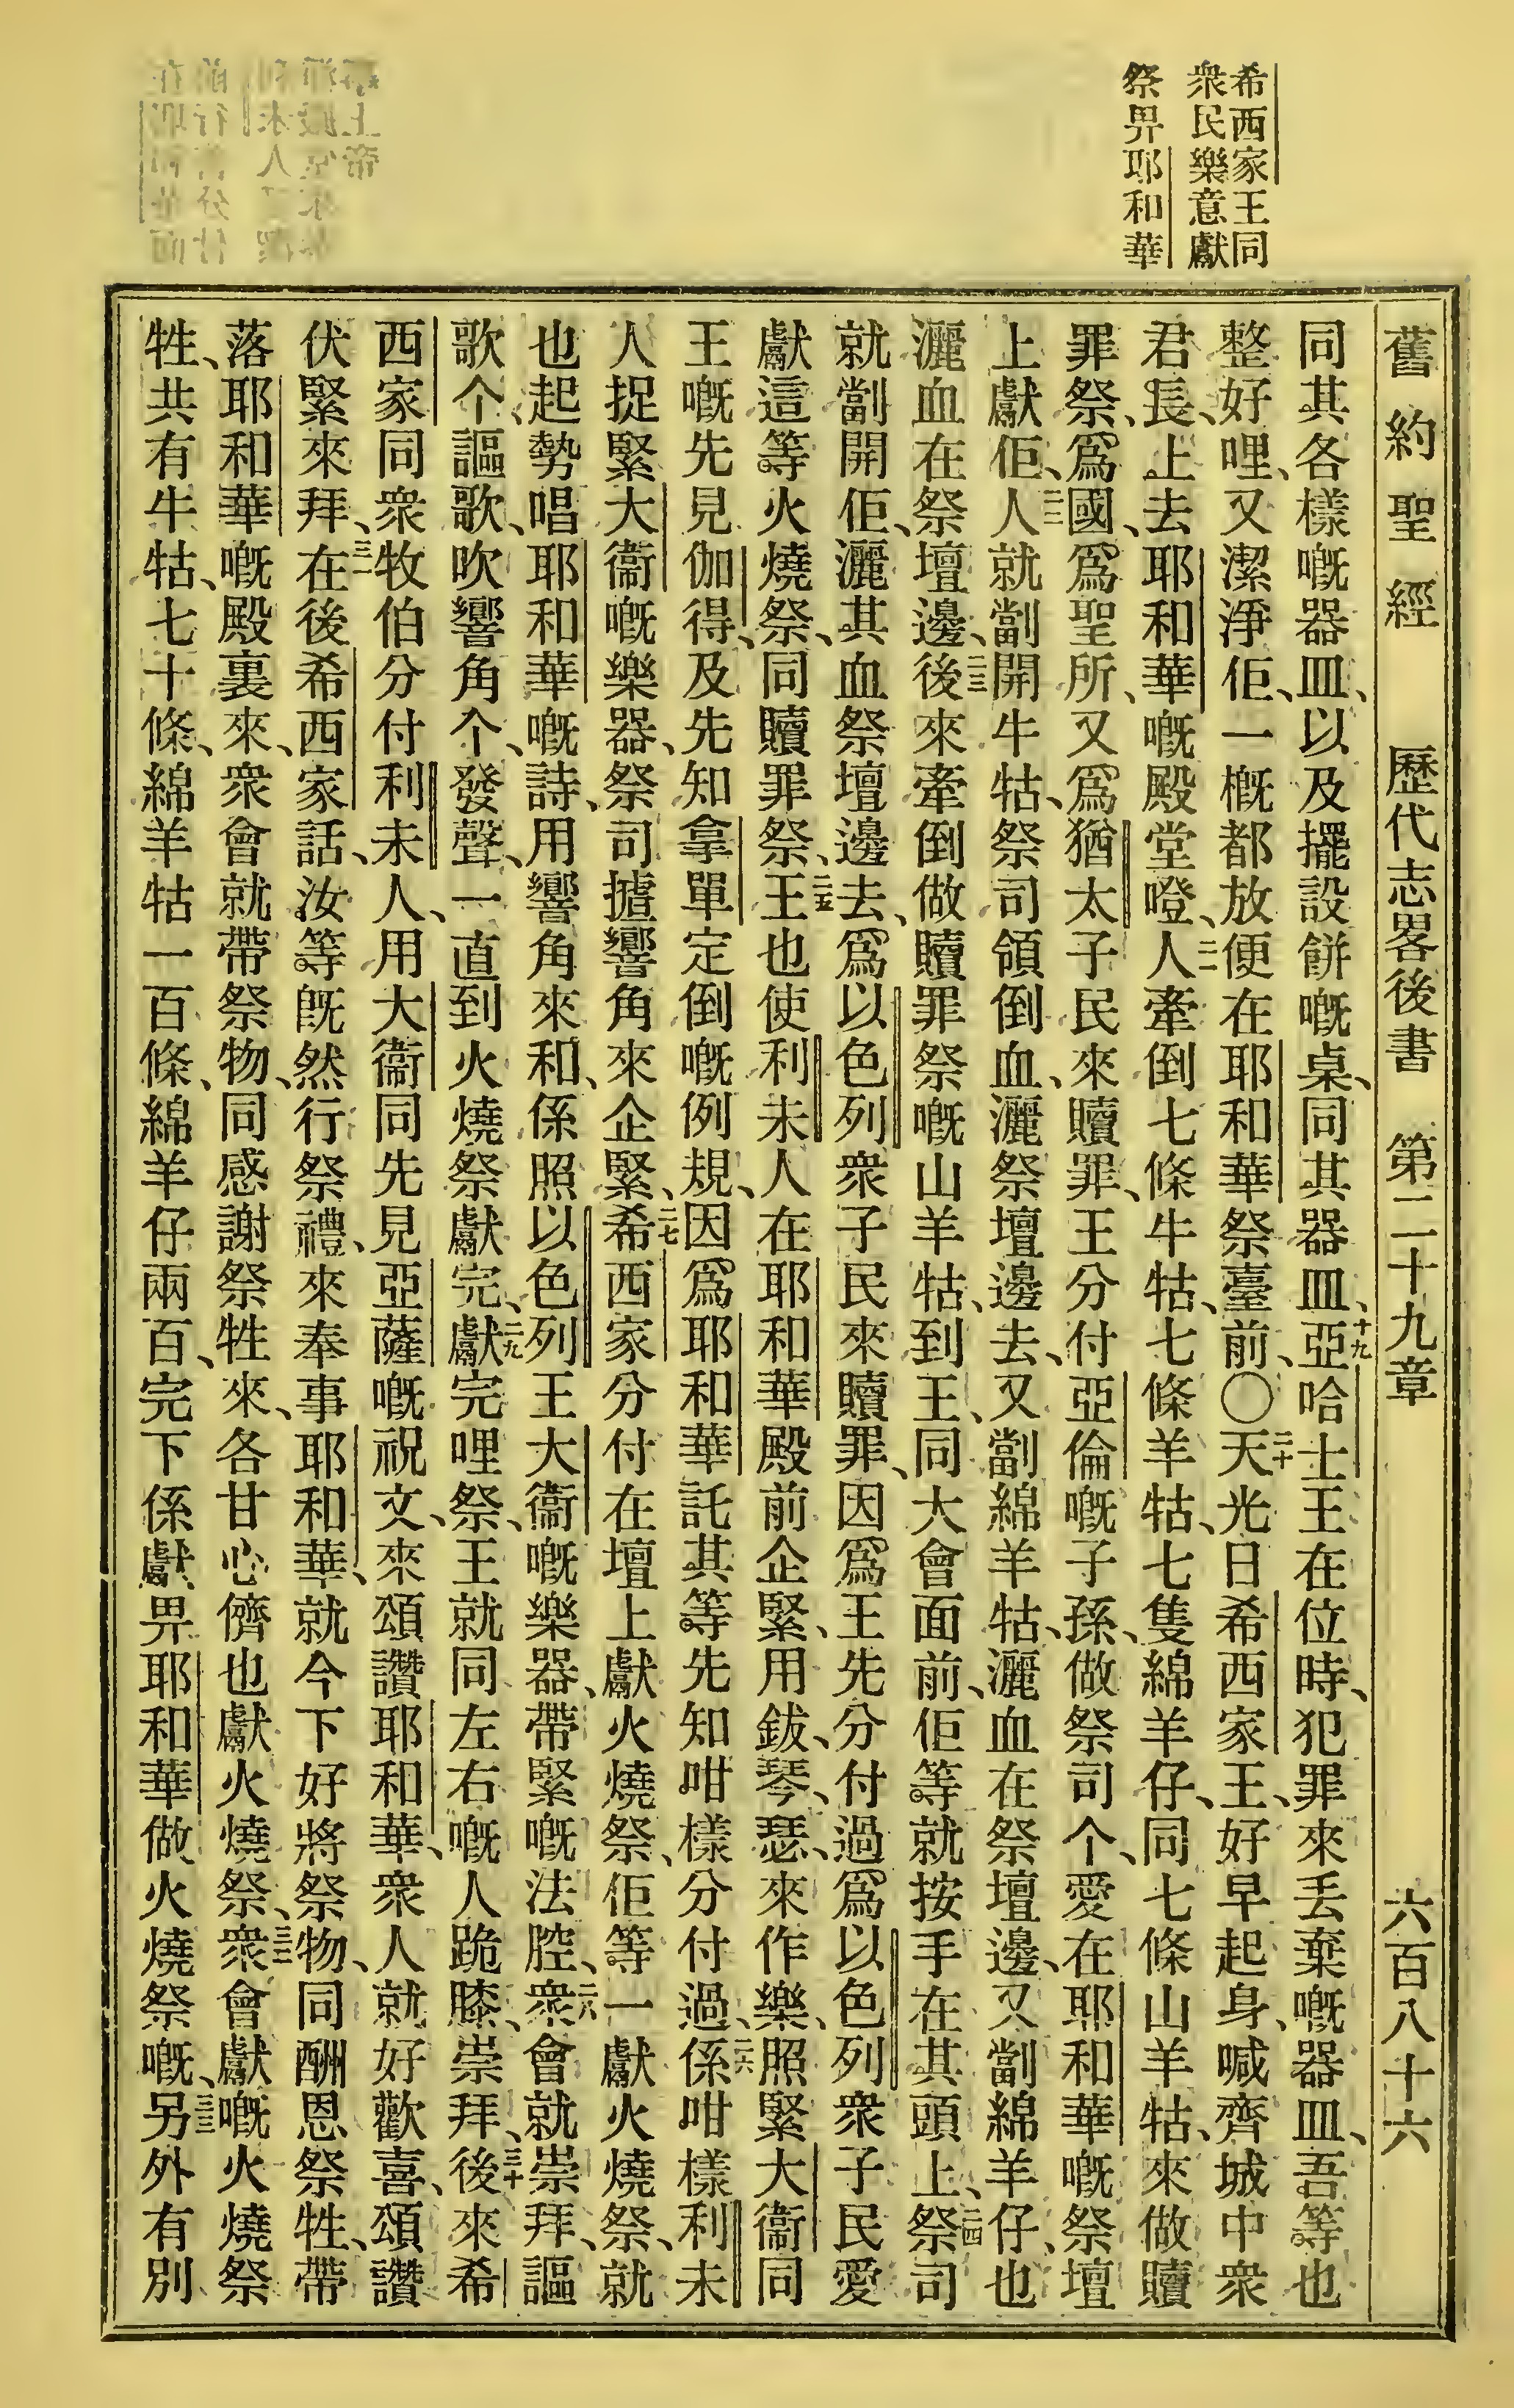 希西家王同
衆民樂意獻
祭畀耶和華
舊約聖經 歷代志畧後書 第二十九章 六百八十六
同其各樣嘅器皿、以及擺設餅嘅桌、同其器皿、十九亞哈士王在位時、犯罪來丟棄嘅器皿、吾等也
整好哩、又潔淨佢、一概都放便在耶和華祭臺前、〇二十天光日希西家王、好早起身、喊齊城中衆
君長、上去耶和華嘅殿堂噔、二一人牽倒七條牛牯、七條羊牯、七隻綿羊仔、同七條山羊牯、來做贖
罪祭、爲國、爲聖所、又爲猶太子民來贖罪、王分付亞倫嘅子孫、做祭司个、愛在耶和華嘅祭壇
上獻佢、二二人就劏開牛牯、祭司領倒血、灑祭壇邊去、又劏綿羊牯、灑血在祭壇邊、又劏綿羊仔、也
灑血在祭壇邊、二三後來牽倒做贖罪祭嘅山羊牯、到王、同大會面前、佢等就按手在其頭上、二四祭司
就劏開佢、灑其血祭壇邊去、爲以色列衆子民來贖罪、因爲王先分付過爲以色列衆子民愛
獻這等火燒祭、同贖罪祭、二五王也使利未人在耶和華殿前企緊、用鈸、琴、瑟、來作樂、照緊大衞同
王嘅先見伽得、及先知拿單定倒嘅例規、因爲耶和華託其等先知咁樣分付過、二六係咁樣利未
人捉緊大衞嘅樂器、祭司摣響角來企緊、二七希西家分付在壇上獻火燒祭、佢等一獻火燒祭、就
也起勢唱耶和華嘅詩、用響角來和、係照以色列王大衞嘅樂器、帶緊嘅法腔、二八衆會就崇拜、謳
歌个、謳歌、吹響角个、發聲、一直到火燒祭獻完、二九獻完哩祭、王就同左右嘅人跪膝、崇拜、三十後來希
西家同衆牧伯分付利未人、用大衞同先見亞薩嘅祝文、來頌讚耶和華、衆人就好歡喜、頌讚
伏緊來拜、三一在後希西家話、汝等旣然行祭禮、來奉事耶和華、就今下好將祭物、同酬恩祭牲、帶
落耶和華嘅殿裏來、衆會就帶祭物、同感謝祭牲來、各甘心儕也獻火燒祭、三二衆會獻嘅火燒祭
牲、共有牛牯、七十條、綿羊牯一百條、綿羊仔兩百、完下係獻畀耶和華做火燒祭嘅、三三另外有別